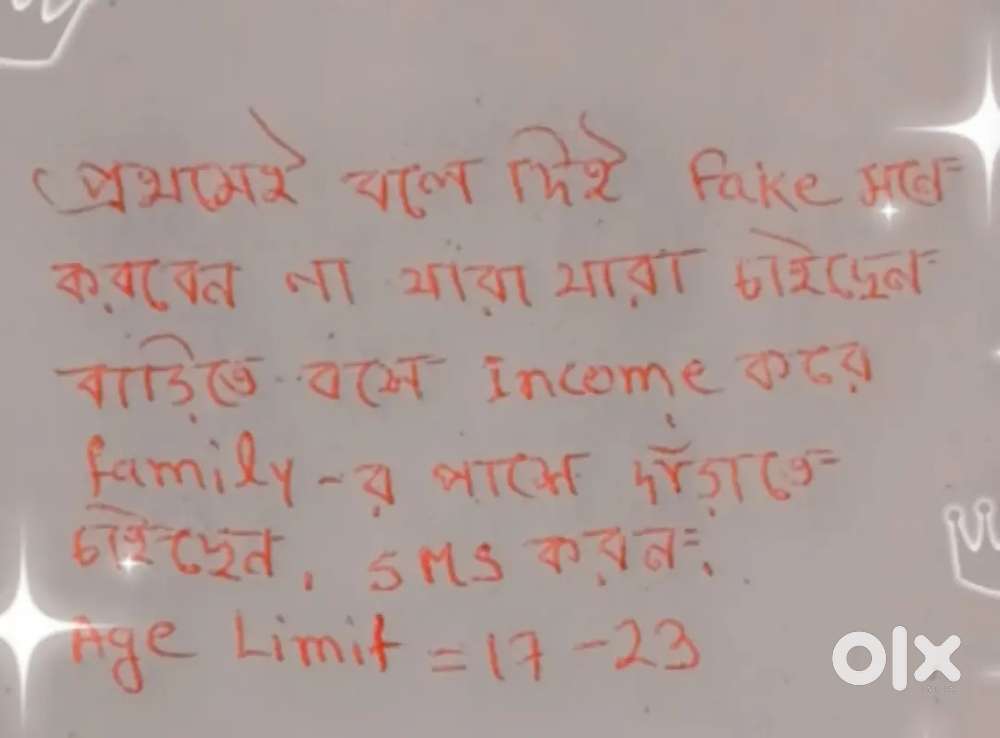 প্রথমেই বলে দিই Fake মনে
করবেন না যারা যারা চাইছেন
বাড়িতে বসে Income করে
family-র পাসে দাঁড়াতে
চাইছেন, SMS করুন:
Age Limit = 17-23
olx